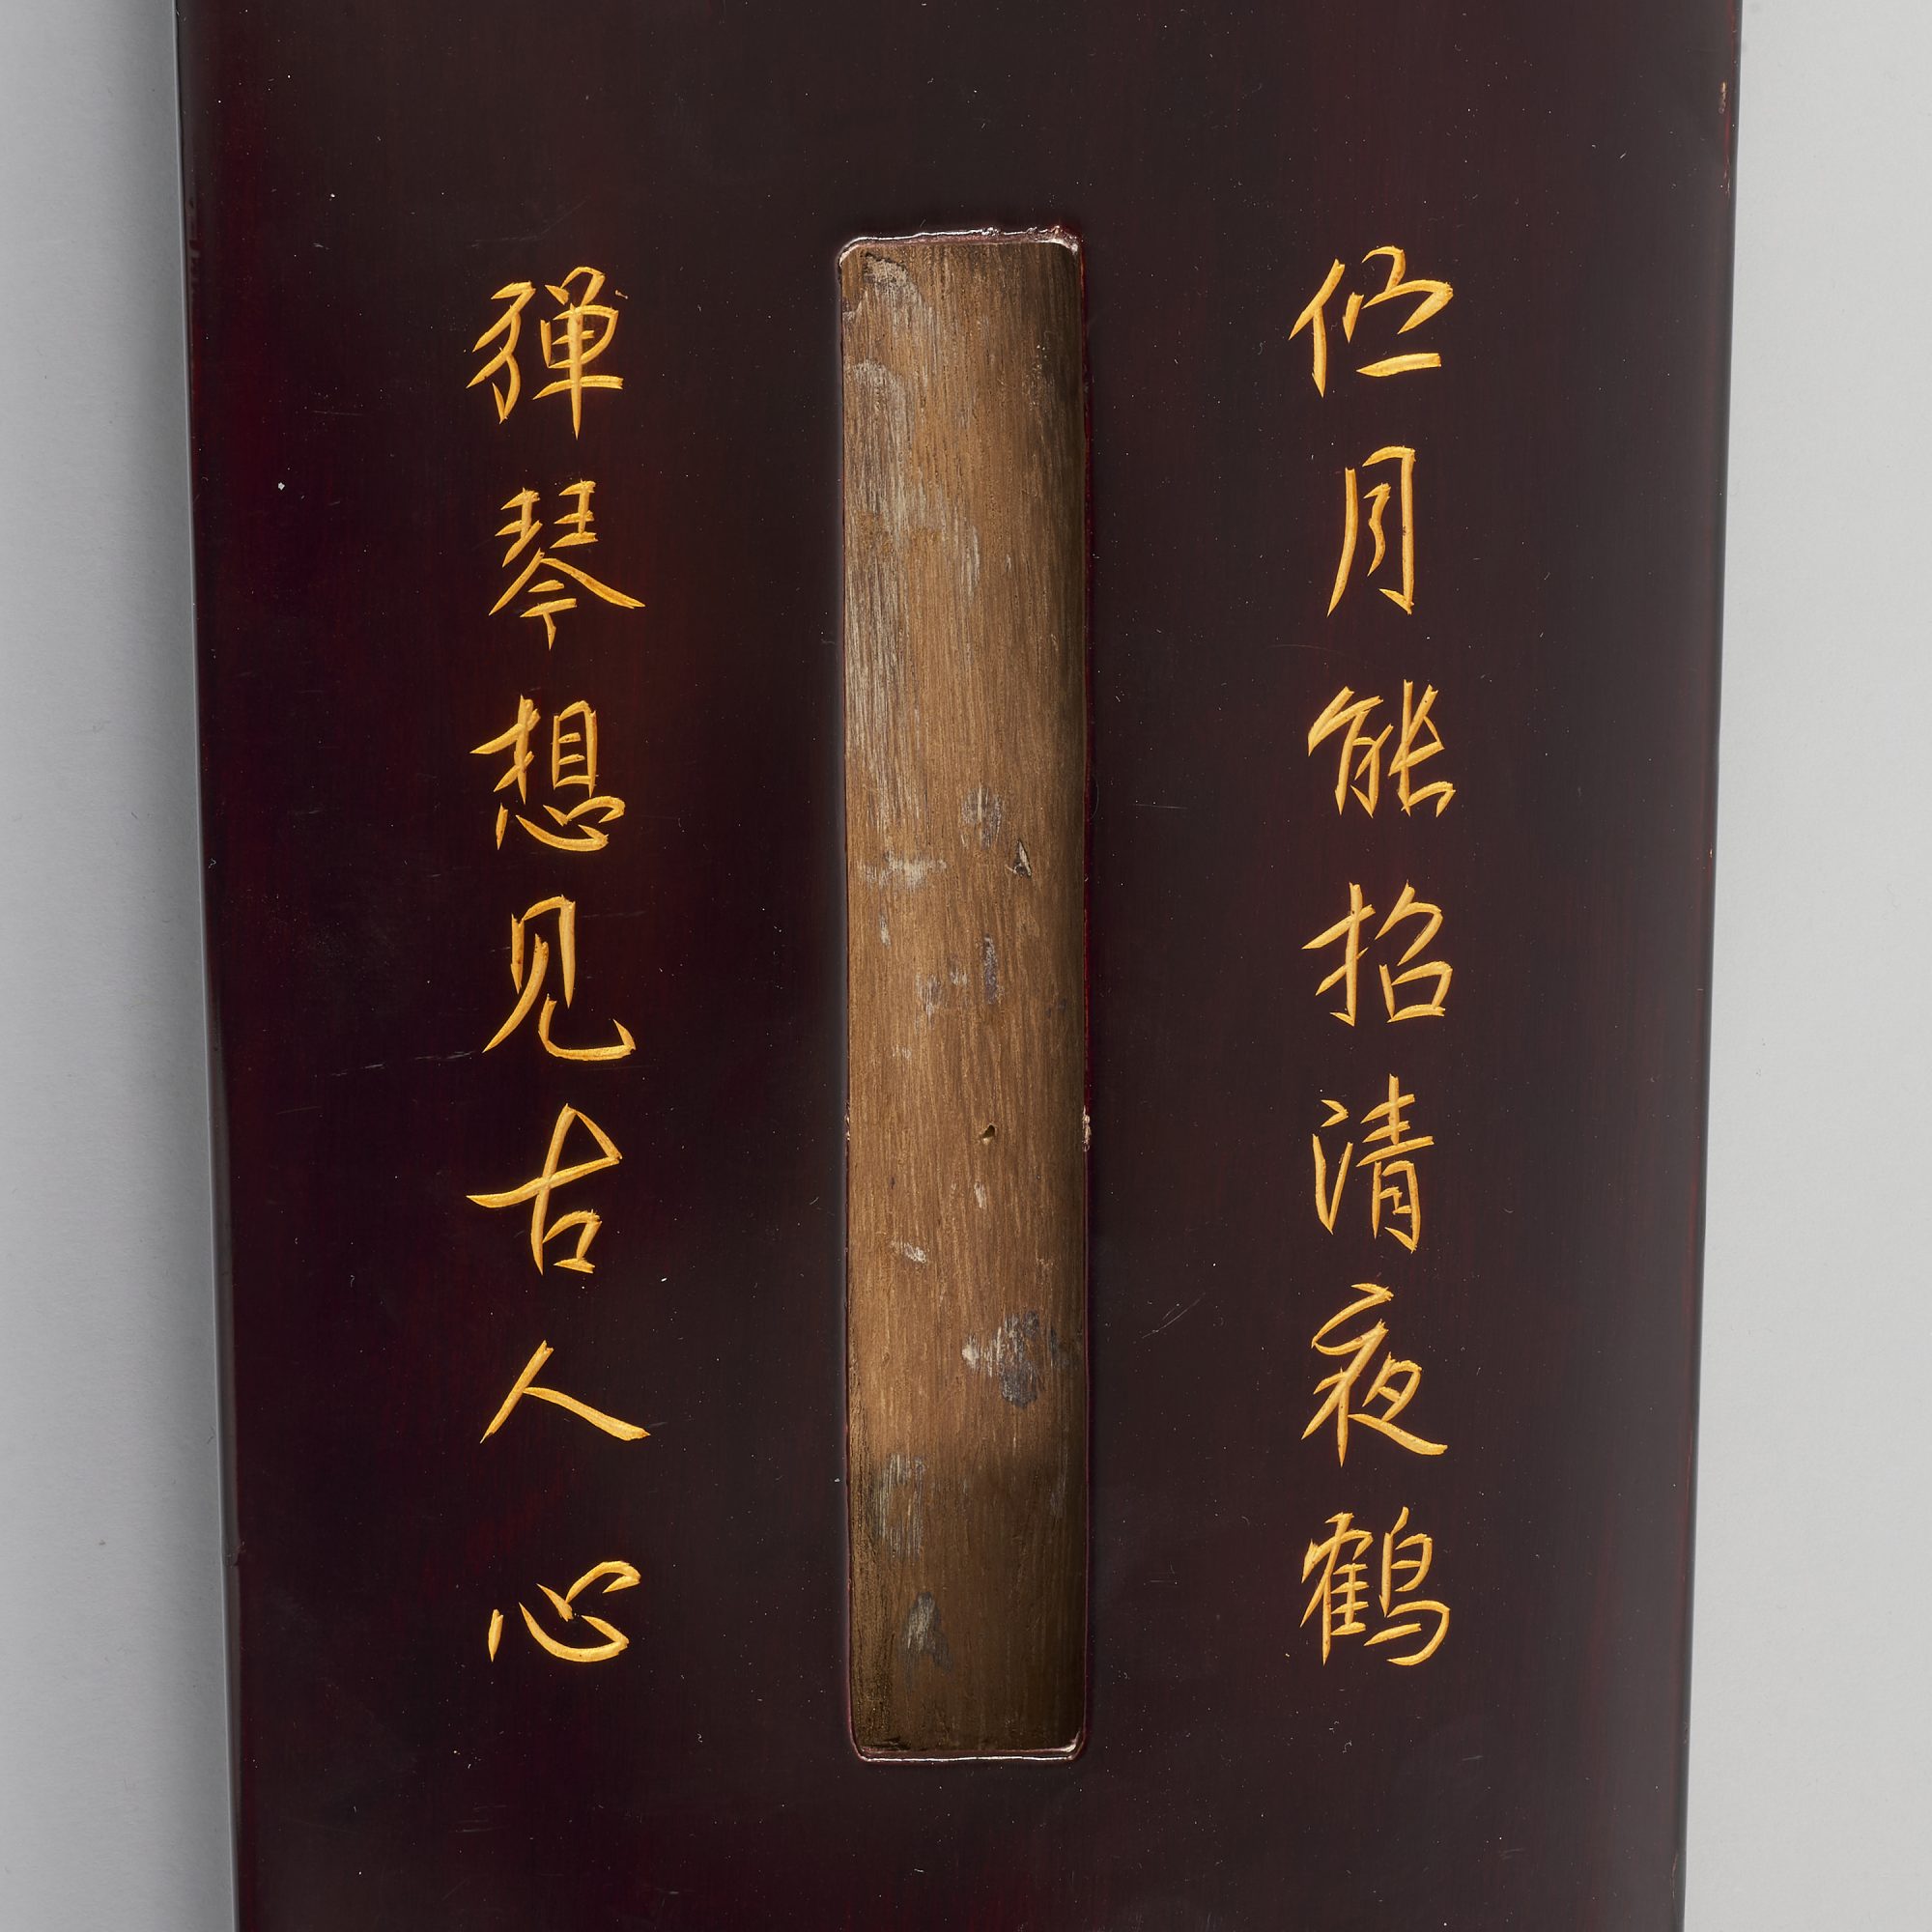 伫月能招清夜鹤
弹琴想见古人心